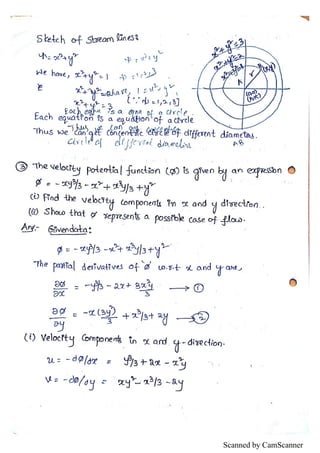 Sketch of Stream lines:
ψ = x²+y²
We have, x²+y² = 1
x²+y² = 2
x²+y² = 3 [∵ ψ = 1,2,3]
Each equation is a equation of a circle
Thus we can get concentric circle of different diameters.
x²+y²=3
x²+y²=2
③ The velocity potential function (ø) is given by an expression
ø = -xy³/3 - x² + x³y/3 + y²
(i) Find the velocity components in x and y direction.
(ii) Show that ø represents a possible case of flow.
Ans:- Given data:
ø = -xy³/3 - x² + x³y/3 + y²
The partial derivatives of 'ø' w.r.t x and y are,
∂ø/∂x = -y³/3 - 2x + 3x²y/3 → ①
∂ø/∂y = -x(3y²)/3 + x³/3 + 2y → ②
(i) Velocity components in x and y - direction.
u = -dø/dx = y³/3 + 2x - x²y
v = -dø/dy = xy² - x³/3 - 2y
Scanned by CamScanner